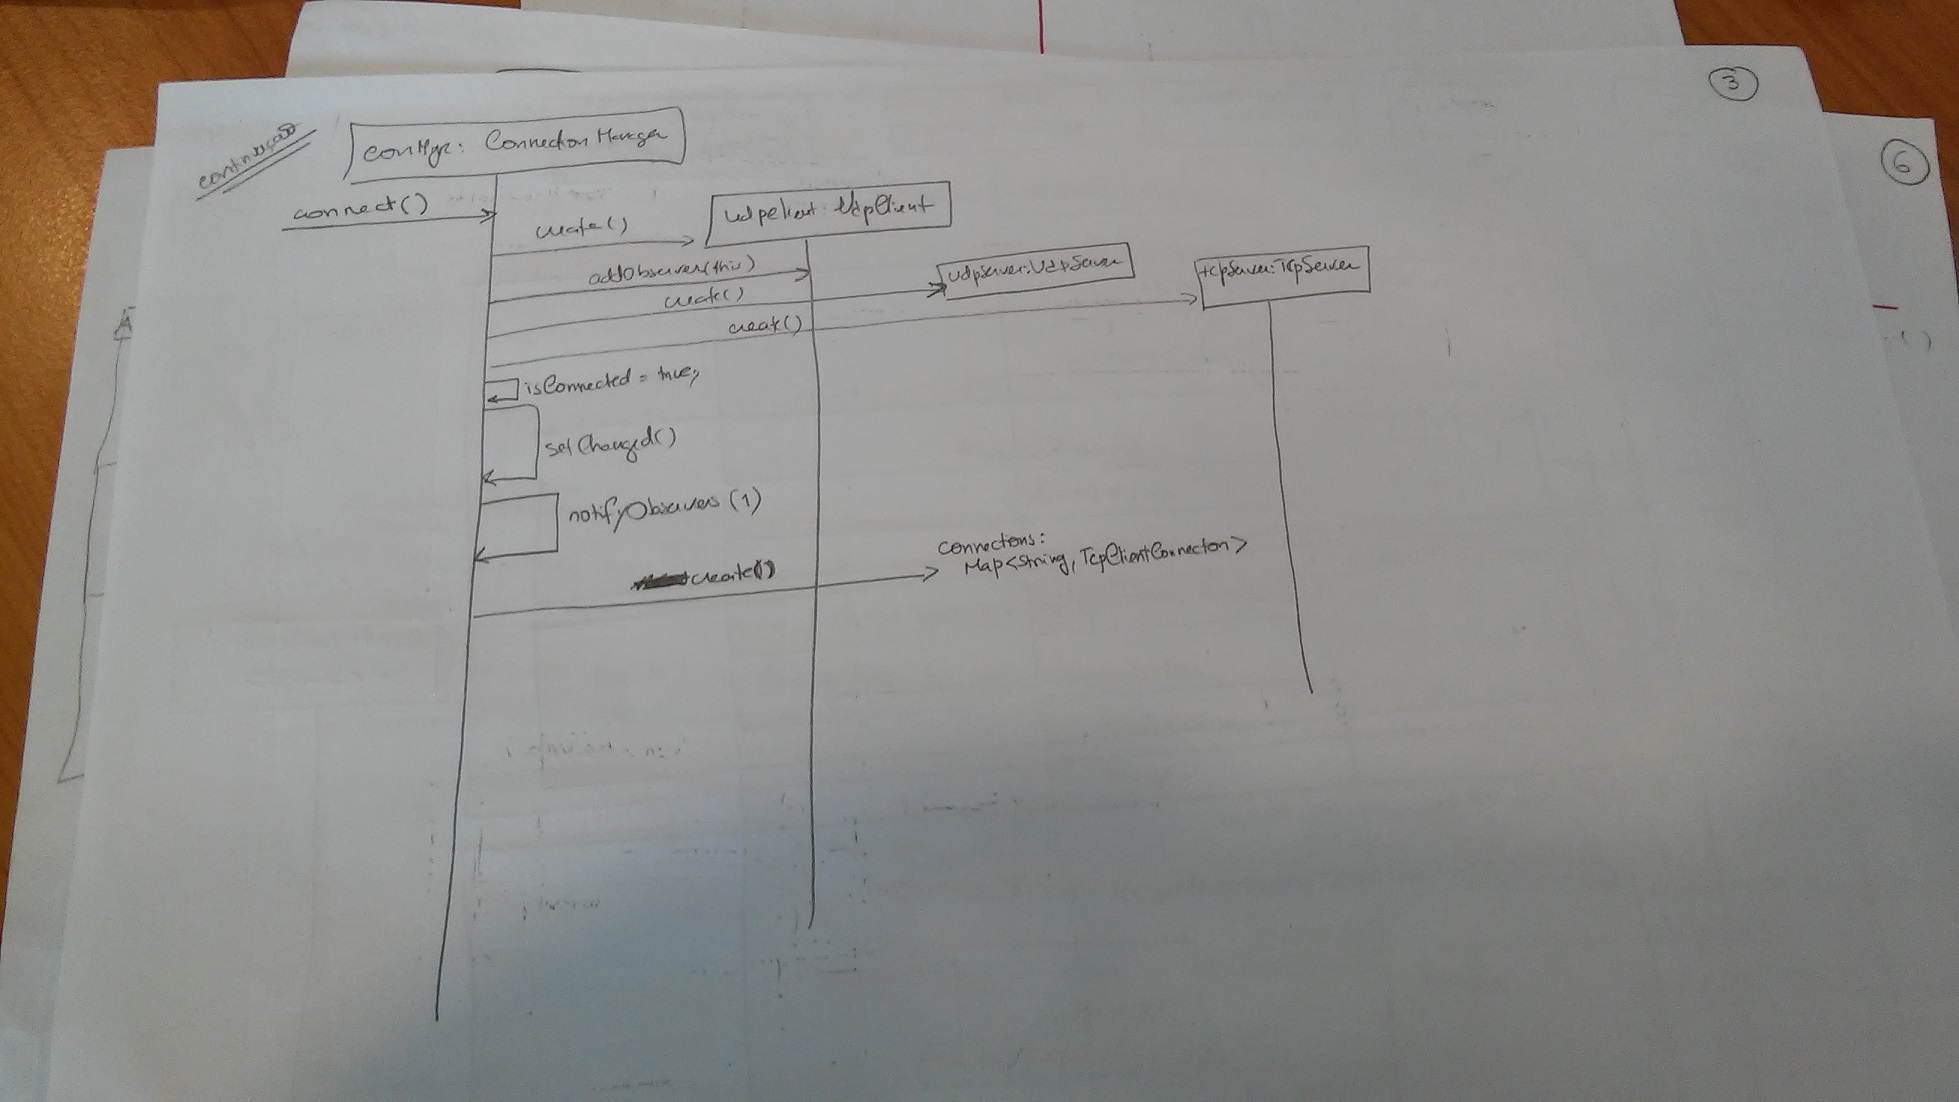 3
6
continuação
conMgr: Connection Manager
connect()
create()
udpClient: UdpClient
addObserver(this)
create()
udpServer: UdpServer
tcpServer: TcpServer
create()
isConnected = true;
setChanged()
notifyObservers (1)
connections:
Map<String, TcpClientConnection>
create()